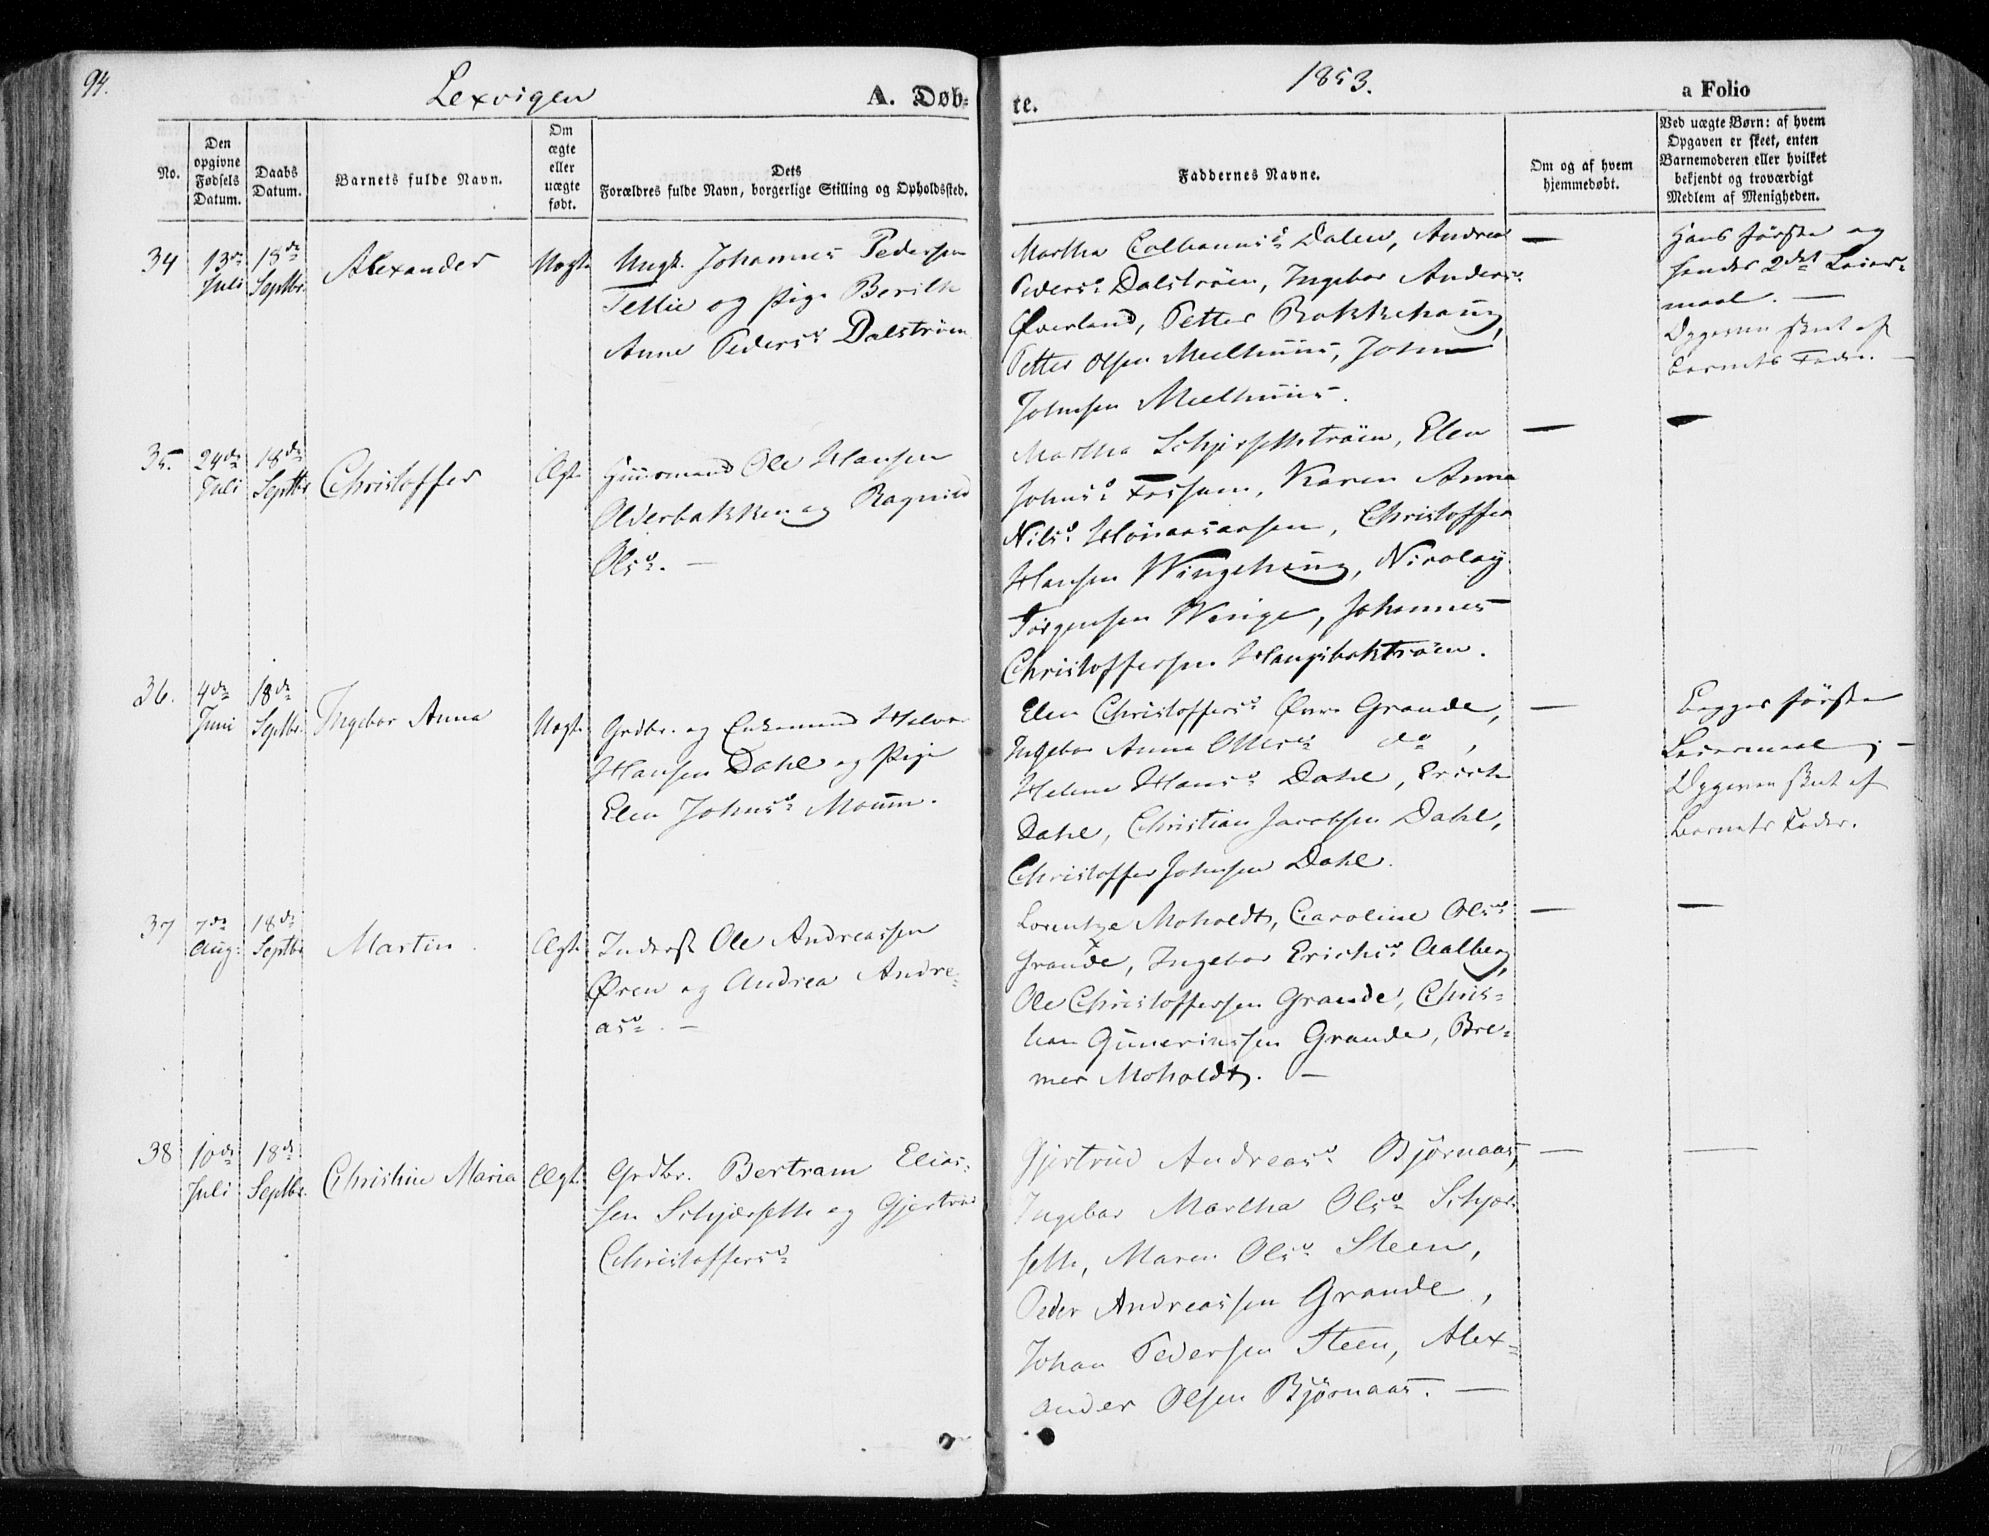 94.
Lexvigen
A. Døb-
te.
1853.
a Folio
No.
Den
opgivne
Fødsels
Datum.
Daabs
Datum.
Barnets fulde Navn.
Om
ægte
eller
uægte
født.
Dets
Forældres fulde Navn, borgerlige Stilling og Opholdssted.
Faddernes Navne.
Om og af hvem
hjemmedøbt.
Ved uægte Børn: af hvem
Opgaven er skeet, enten
Barnemoderen eller hvilket
bekjendt og troværdigt
Medlem af Menigheden.
34
13de
Juli
18de
Septbr.
Alexander
Uægt.
Ungk. Johannes Pedersen
og Pige Berith
Anne Pedersd. Dalstrøen
Martha Dalen, Andrea
Pedersd. Dalstrøen, Ingebor Andersd.
Øverland, Petter Rokkehaug,
Petter Olsen Meelhuus, John
Johnsen Meelhuus.
—
Hans første og
hendes 2det Leier-
maal. —
Opgaven skeet af
Barnets Fader. —
35.
24de
Juli
18de
Septbr.
Christoffer
Ægt.
Huusmand Ole Hansen
Olderbakken og Ragnild
Olsd. —
Martha Schjerfsettstrøen, Elen
Johnsd. Fossum, Karen Anna
Nilsd. Christoffer
Hansen Wingehaug, Nicolay
Jørgensen Winge, Johannes
Christoffersen
—
—
36.
4de
Juni
18de
Septbr.
Ingebor Anna
Uægt.
Grdbr. og Enkemand
Hansen Dahl og Pige
Elen Johnsd. Moum.
Elen Christoffersd. Øvre Grande,
Ingebor Anna Ottersd. do,
Helena Hansd. Dahl, Erich
Dahl, Christian Jacobsen Dahl,
Christoffer Johnsen Dahl.
—
Begges første
Leiermaal; —
Opgaven skeet af
Barnets Fader.
37
7de
Aug.
18de
Septbr.
Martin
Ægt.
Inderst Ole Andreassen
Øren og Andrea Andre-
asd. —
Lorentze Moholdt, Caroline Olsd.
Grande, Ingebor Erichsd. Aalberg,
Ole Christoffersen Grande, Chris-
tian Gunerinssen Grande, Bre-
mer Moholdt. —
—
—
38
10de
Juli
18de
Septbr.
Christine Maria
Ægt.
Grdbr. Bertram Elias-
sen Schjerfsette og Gjertrud
Christoffersd.
Gjertrud Andreasd. Bjørnaas,
Ingebor Martha Olsd. Schjer-
fsette, Maren Olsd. Steen,
Peder Andreassen Grande,
Johan Pedersen Steen, Alex-
ander Olsen Bjørnaas. —
—
—